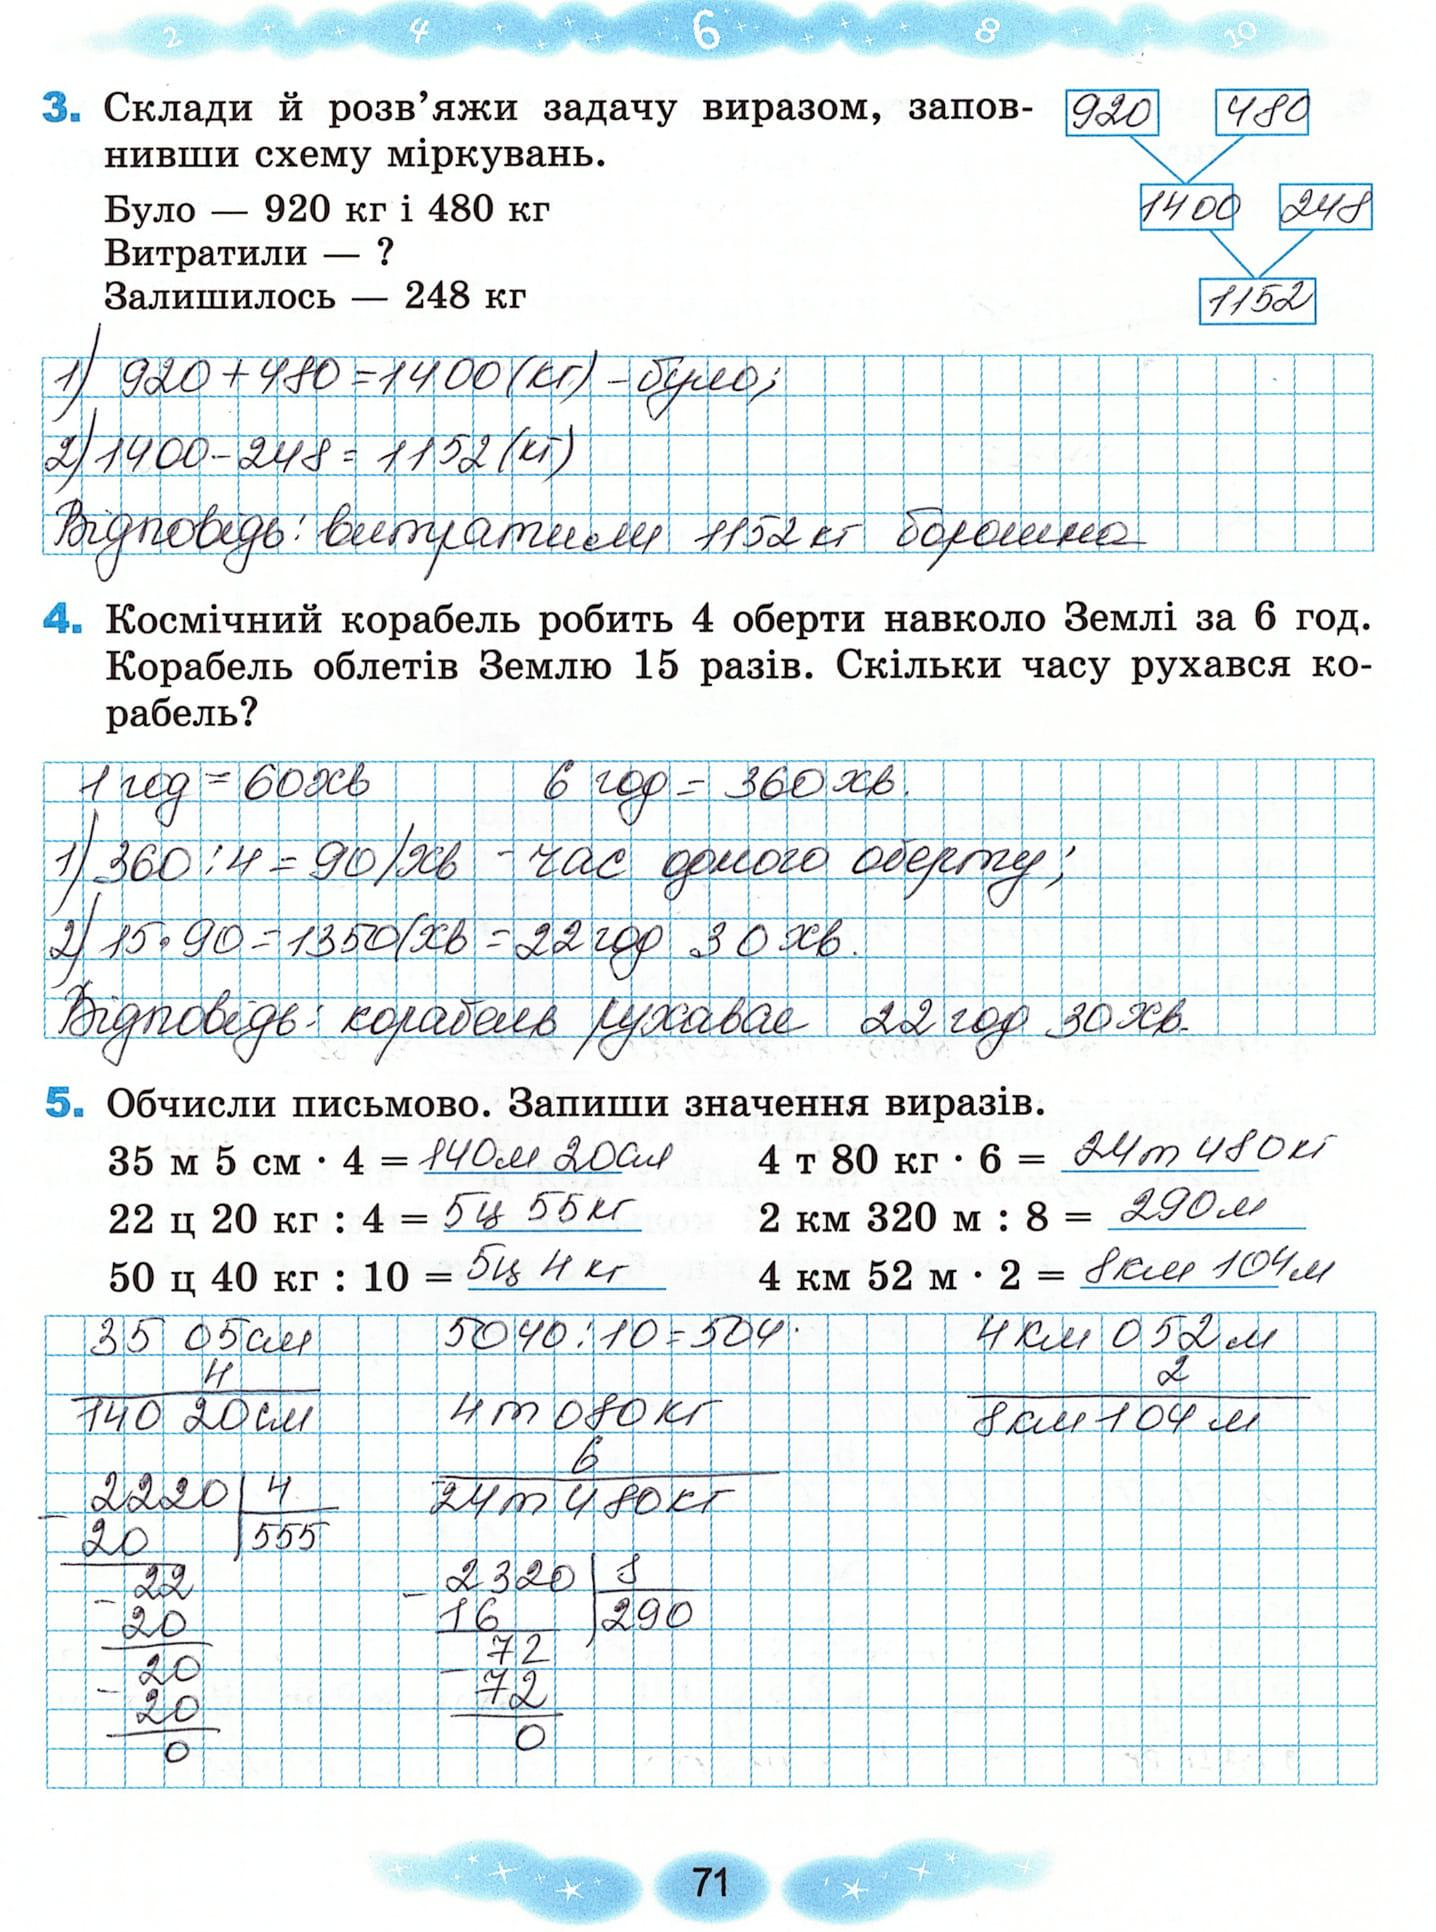 2 4 6 8 10
3. Склади й розв’яжи задачу виразом, запов-
нивши схему міркувань.
Було — 920 кг і 480 кг
Витратили — ?
Залишилось — 248 кг
920 480
1400 248
1152
1) 920+480=1400(кг) – було;
2) 1400-248=1152(кг)
Відповідь: витратили 1152 кг борошна
4. Космічний корабель робить 4 оберти навколо Землі за 6 год.
Корабель облетів Землю 15 разів. Скільки часу рухався ко-
рабель?
1 год = 60хв 6 год = 360 хв.
1) 360:4=90/хв - час одного оберту;
2) 15·90=1350(хв = 22 год 30 хв.
Відповідь: корабель рухаває 22 год 30хв.
5. Обчисли письмово. Запиши значення виразів.
35 м 5 см · 4 = 140м 20см 4 т 80 кг · 6 = 24т 480кг
22 ц 20 кг : 4 = 5ц 55кг 2 км 320 м : 8 = 290м
50 ц 40 кг : 10 = 5ц 4 кг 4 км 52 м · 2 = 8км 104м
35 05см 5040:10=504. 4 км 052 м
4 2
140 20см 4т 080кг 8км 104 м
6
2220 4 24т 480кг
- 20 555
- 22 - 2320 8
20 16 290
- 20 - 72
20 72
0 0
71